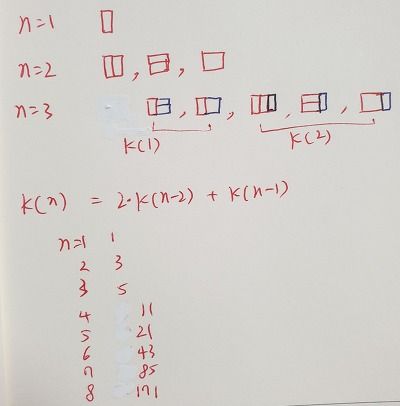 n=1
n=2 , ,
n=3 , , , ,
k(1) k(2)
k(n) = 2·k(n-2) + k(n-1)
n=1 1
2 3
3 5
4 11
5 21
6 43
7 85
8 171